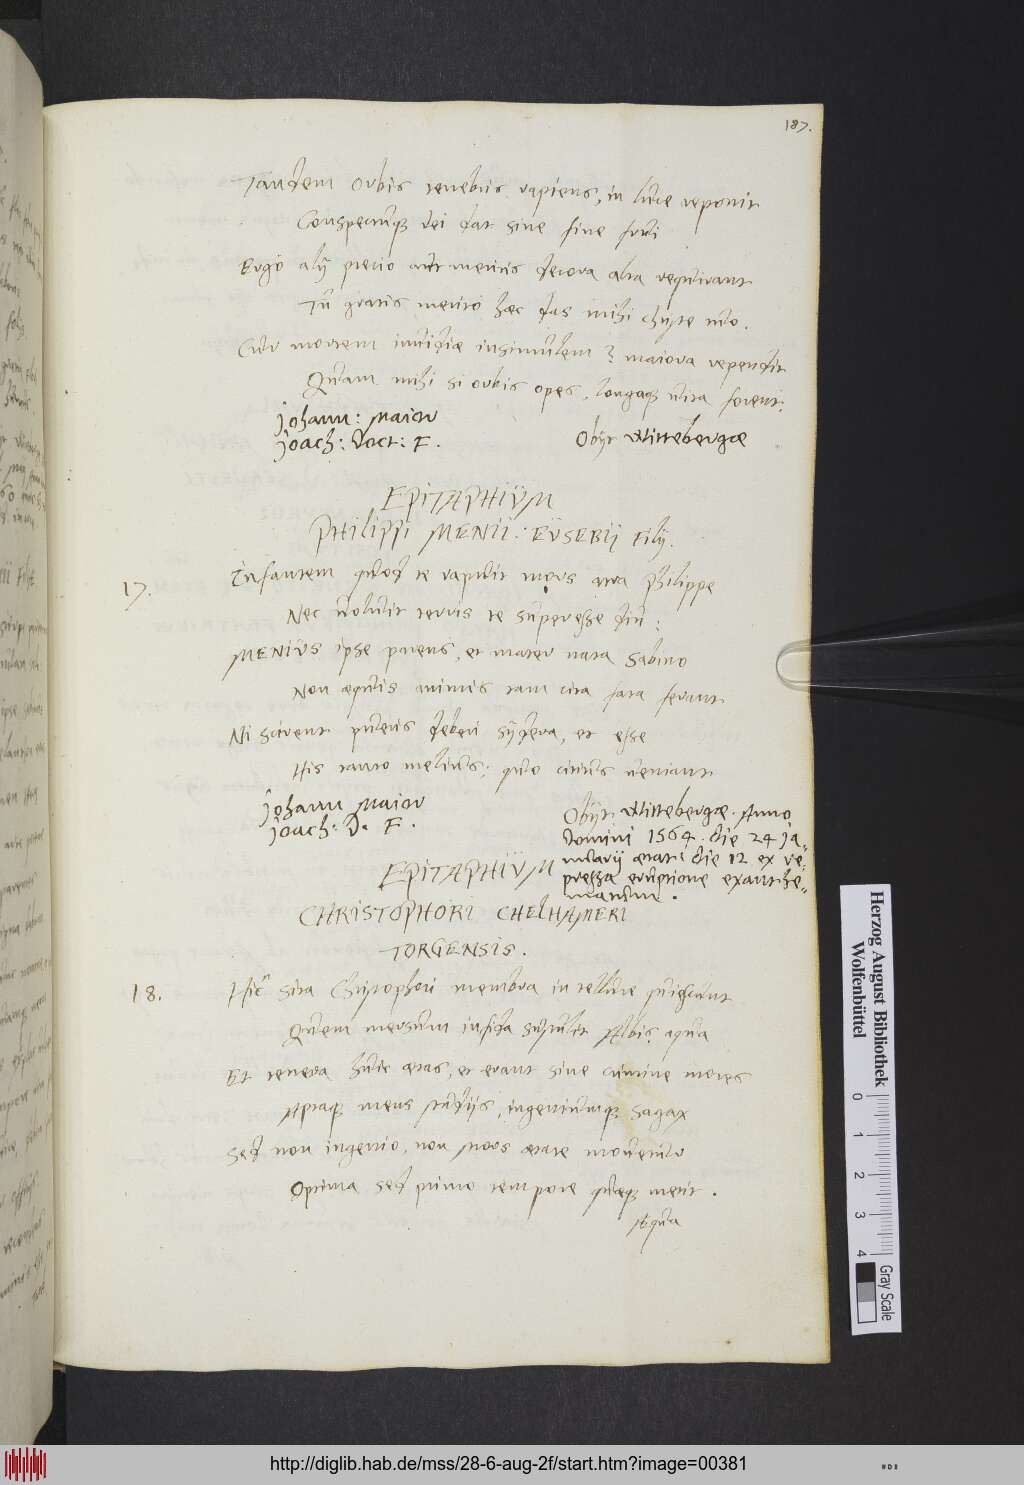 187.
Tandem orbis tenebris rapiens, in luce reponit
Conspectuq; dei dat sine fine frui
Ergo alij precio aut meritis decora alta requirant
Tu gratis merito hæc das mihi Christe tuo.
Cur mortem inuidiæ insimulem? maiora rependit
Quam mihi si orbis opes, longaq; uita foret.
Johann: Maior
Joach: Doct: F.
Obijt Wittebergæ
EPITAPHIUM
PHILIPPI MENII. EUSEBIJ Filij.
17.
Infantem quod te rapuit mors atra Philippe
Nec uoluit terris te superesse diu:
MENIUS ipse parens, et mater nata Sabino
Non æquis animis tam cita fata ferunt
Ni scirent pueris deberi sydera, et esse
His tanto melius; quo citius ueniunt
Johann Maior
Joach: D. F.
Obijt Wittebergæ. Anno
Domini 1564. die 24 Ja„
nuarij ætatis die 12 ex re„
pressa eruptione exanthe„
matum.
EPITAPHIUM
CHRISTOPHORI CHELHAMERI
TORGENSIS.
18.
Hic sita Christophori membra in tellure quiescunt
Quem mersum insida sustulit Albis aqua
Et tenera huic ætas, et erant sine crimine mores
Aptaq; mens studijs, ingeniumq; sagax
Sed non ingenio, non mors ætate mouetur
Optima sed primo tempore quæq; metit.
Aequa
Herzog August Bibliothek
Wolfenbüttel
0 1 2 3 4
Gray Scale
http://diglib.hab.de/mss/28-6-aug-2f/start.htm?image=00381